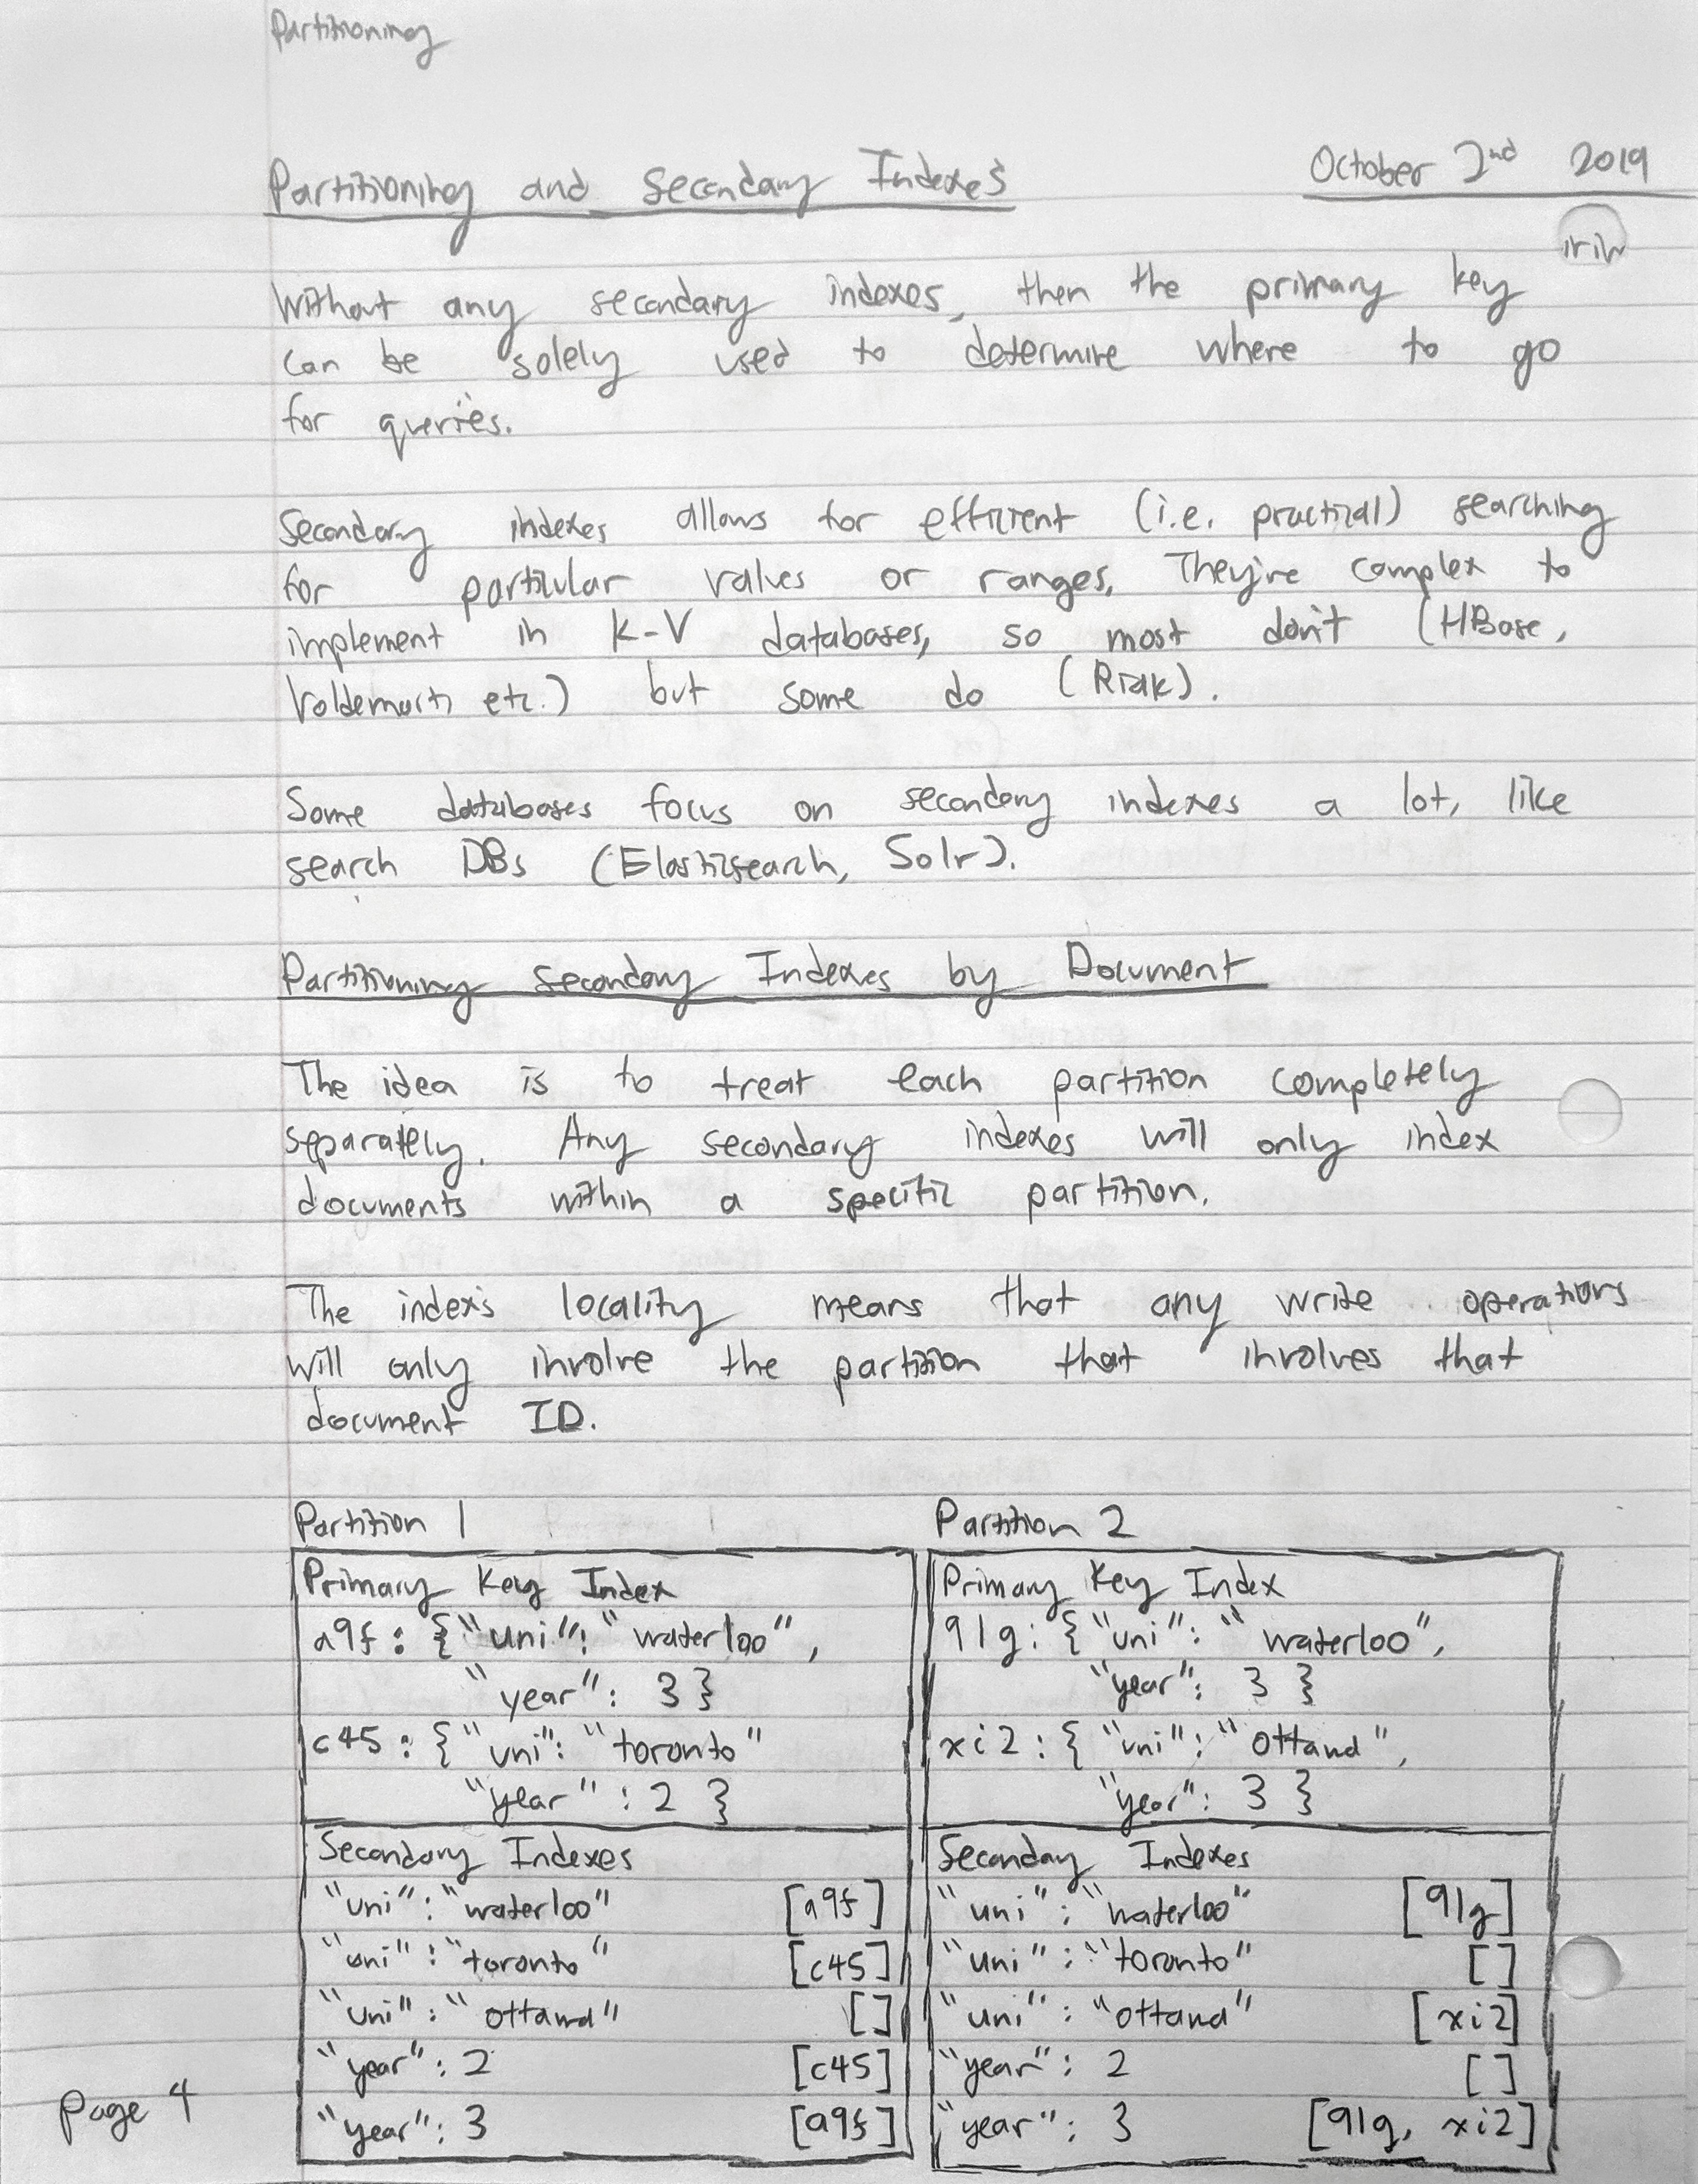 Partitioning
Partitioning and Secondary Indexes
October 2nd 2019
Without any secondary indexes, then the primary key
can be solely used to determine where to go
for queries.
Secondary indexes allows for efficient (i.e. practical) searching
for particular values or ranges. They're complex to
implement in K-V databases, so most don't (HBase,
Voldemort, etc.) but some do (Riak).
Some databases focus on secondary indexes a lot, like
search DBs (Elasticsearch, Solr).
Partitioning Secondary Indexes by Document
The idea is to treat each partition completely
separately. Any secondary indexes will only index
documents within a specific partition.
The index's locality means that any write operations
will only involve the partition that involves that
document ID.
Partition 1
Primary Key Index
a9f : {"uni": "waterloo",
"year": 3 }
c45 : {"uni": "toronto"
"year" : 2 }
Secondary Indexes
"uni": "waterloo" [a9f]
"uni": "toronto" [c45]
"uni": "ottawa" []
"year": 2 [c45]
"year": 3 [a9f]
Partition 2
Primary Key Index
91g: {"uni": "waterloo",
"year": 3 }
xi2: { "uni": "ottawa",
"year": 3 }
Secondary Indexes
"uni": "waterloo" [91g]
"uni": "toronto" []
"uni": "ottawa" [xi2]
"year": 2 []
"year": 3 [91g, xi2]
Page 4